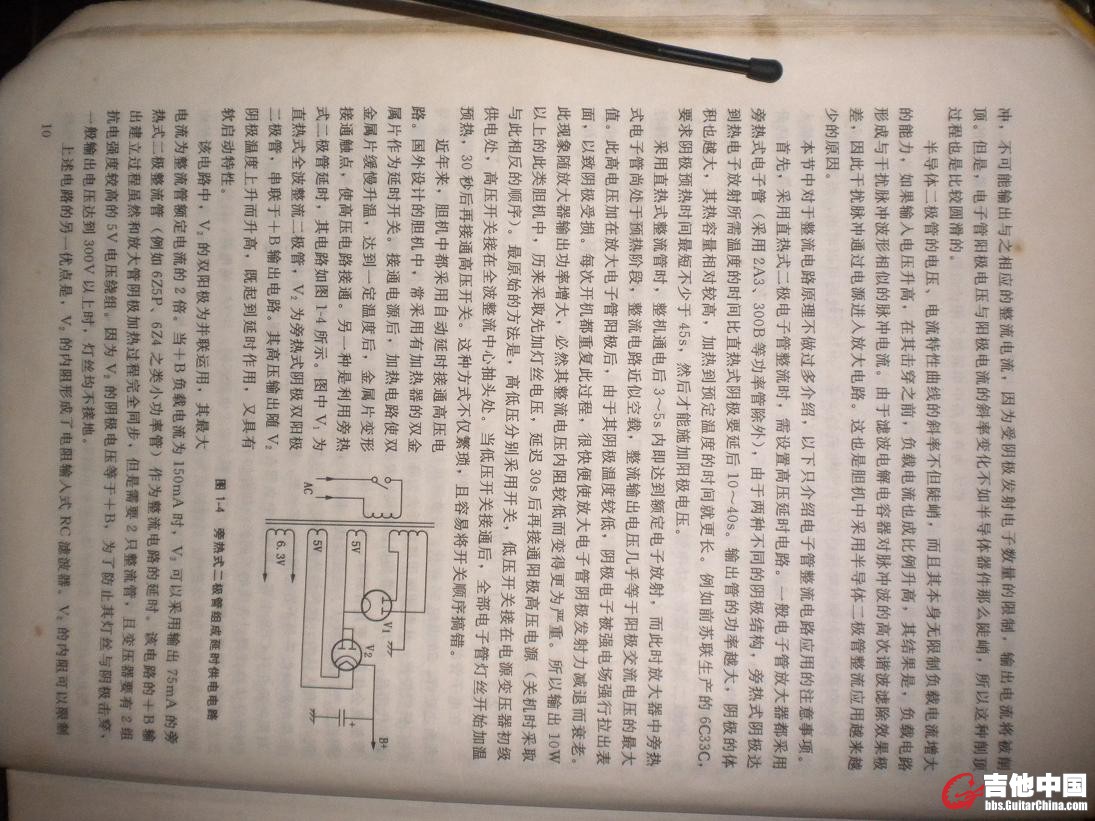 冲，不可能输出与之相应的整流电流，因为受阴极发射电子数量的限制，输出电流将被削
顶。但是，电子管阳极电压与阳极电流的斜率变化不如半导体器件那么陡峭，所以这种削顶
过程也是比较圆滑的。
半导体二极管的电压、电流特性曲线的斜率不但陡峭，而且其本身无限制负载电流增大
的能力，如果输入电压升高，在其击穿之前，负载电流也成比例升高，其结果是，负载电路
形成与干扰脉冲波形相似的脉冲电流。由于滤波电解电容器对脉冲波的高次谐波滤除效果极
差，因此干扰脉冲通过电源进入放大电路。这也是胆机中采用半导体二极管整流应用越来越
少的原因。
本节中对于整流电路原理不做过多介绍，以下只介绍电子管整流电路应用的注意事项。
首先，采用直热式二极电子管整流时，需设置高压延时电路。一般电子管放大器都采用
旁热式电子管（采用2A3、300B等功率管除外），由于两种不同的阴极结构，旁热式阴极达
到热电子放射所需温度的时间比直热式阴极要延后10～40s。输出管的功率越大，阴极的体
积也越大，其热容量相对较高，加热到预定温度的时间就更长。例如前苏联生产的6C33C，
要求阴极预热时间最短不少于45s，然后才能施加阳极电压。
采用直热式整流管时，整机通电后3～5s内即达到额定电子放射，而此时放大器中旁热
式电子管尚处于预热阶段，整流电路近似空载，整流输出电压几乎等于阳极交流电压的最大
值。此高电压加在放大电子管阳极后，由于其阴极温度较低，阴极电子被强电场强行拉出表
面，以致阴极受损。每次开机都重复此过程，很快便使放大电子管阴极发射力减退而衰老。
此现象随放大器输出功率增大，必然其整流电压内阻较低而变得更为严重。所以输出10W
以上的此类胆机中，历来采取先加灯丝电压，延迟30s后再接通阳极高压电源（关机时采取
与此相反的顺序）。最原始的方法是，高低压分别采用开关，低压开关接在电源变压器初级
供电处，高压开关接在全波整流中心抽头处。当低压开关接通后，全部电子管灯丝开始加温
预热，30秒后再接通高压开关。这种方式不仅繁琐，且容易将开关顺序搞错。
近年来，胆机中都采用自动延时接通高压电
路。国外设计的胆机中，常采用有加热器的双金
属片作为延时开关。接通电源后，加热电路使双
金属片缓慢升温，达到一定温度后，金属片变形
接通触点，使高压电路接通。另一种是利用旁热
式二极管延时，其电路如图1-4所示。图中V₁为
直热式全波整流二极管，V₂为旁热式阴极双阳极
二极管，串联于＋B输出电路。其高压输出随V₂
阴极温度上升而升高，既起到延时作用，又具有
软启动特性。
AC
5V
5V
6.3V
V₁
V₂
+
B+
图1-4 旁热式二极管组成延时供电电路
该电路中，V₂的双阳极为并联运用，其最大
电流为整流管额定电流的2倍。当＋B负载电流为150mA时，V₂可以采用输出75mA的旁
热式二极整流管（例如6Z5P、6Z4之类小功率管）作为整流电路的延时。该电路的＋B输
出建立过程虽然和放大管阴极加热过程完全同步，但是需要2只整流管，且变压器要有2组
抗电强度较高的5V电压绕组。因为V₂的阴极电压等于＋B，为了防止其灯丝与阴极击穿，
一般输出电压达到300V以上时，灯丝均不接地。
上述电路的另一优点是，V₂的内阻形成了电阻输入式RC滤波器。V₂的内阻可以限制
10
吉他中国
bbs.GuitarChina.com